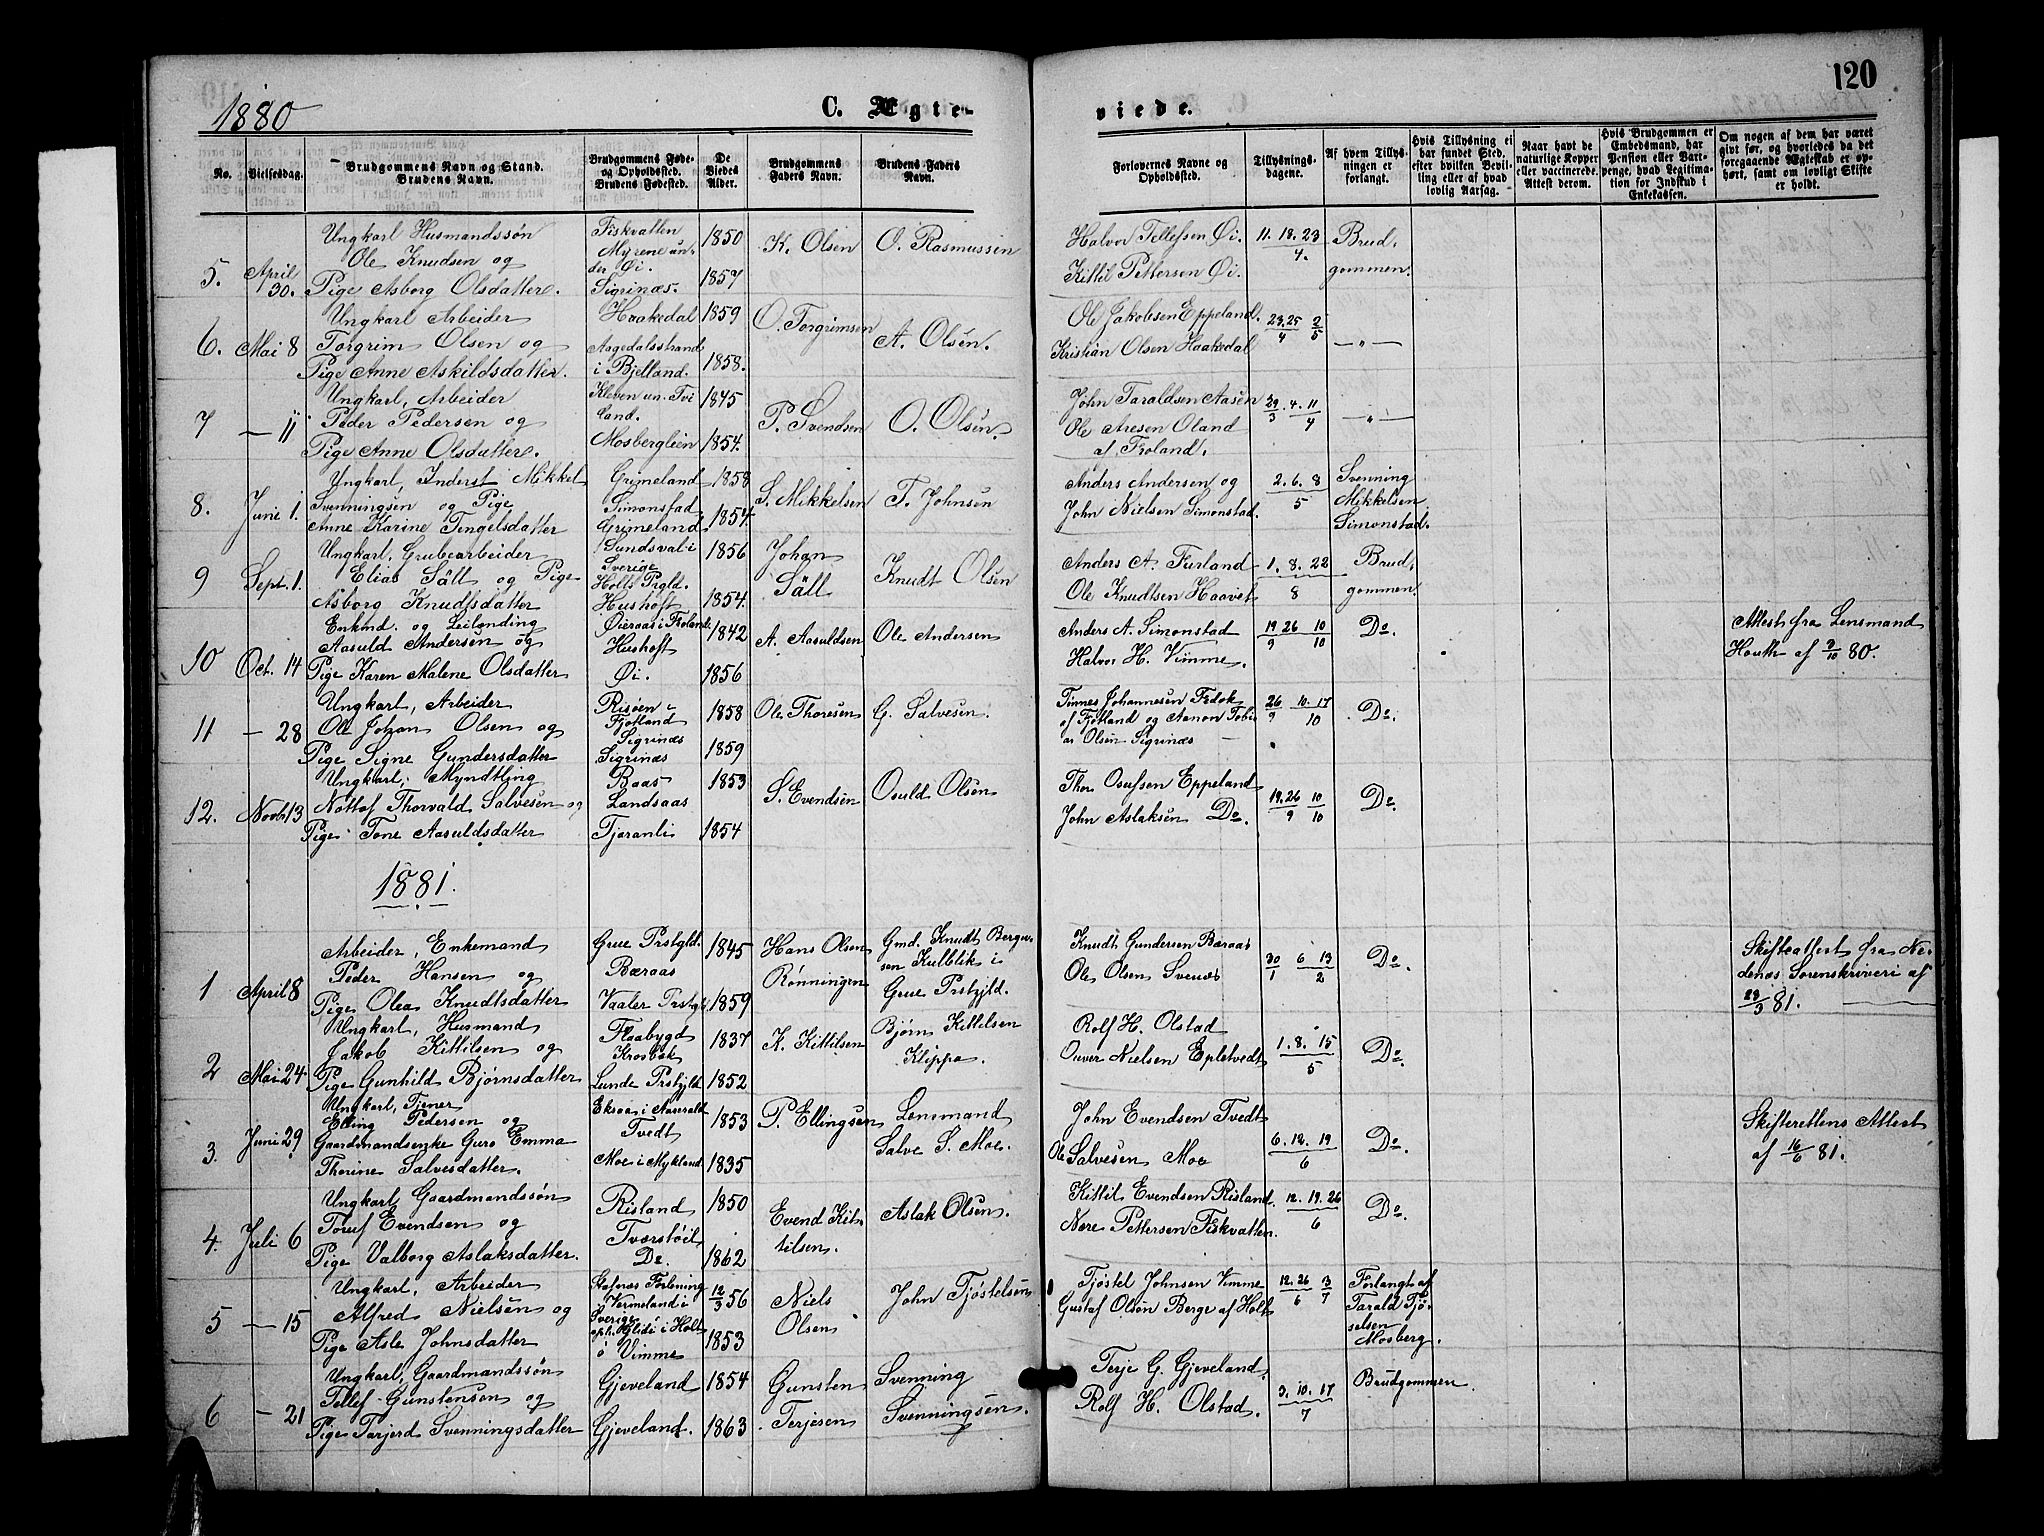 120
1880
C. Ægte-
viede.
No.
Vielsesdag.
Brudgommens Navn og Stand.
Brudens Navn.
Brudgommens Føde-
og Opholdssted.
Brudens Fødested.
De
Viedes
Alder.
Brudgommens
Faders Navn.
Brudens Faders
Navn.
Forlovernes Navne og
Opholdssted.
Tillysnings-
dagene.
Af hvem Tillys-
ningen er
forlangt.
Hvis Tillysning ei
har fundet Sted,
efter hvilken Bevil-
ling eller af hvad
lovlig Aarsag.
Naar havt de
naturlige Kopper
eller vaccinerede.
Attest derom.
Hvis Brudgommen er
Embedsmand, har
Pension eller Vart-
penge, hvad Legitima-
tion for Indskud i
Enkekassen.
Om nogen af dem har været
gift før, og hvorledes da det
foregaaende Ægteskab er op-
hørt, samt om lovligt Skifte
er holdt.
5. April 30.
Ungkarl Husmandssøn
Ole Knudsen og
Pige Asborg Olsdatter.
Fiskvatten
Myrene un-
der Øi.
Sigrinæs.
1850
1857
K. Olsen
O. Rasmussen
Halvor Tellefsen Øi.
Kittil Pettersen Øi.
11. 18. 23
4.
Brud,
gommen.
6. Mai 8
Ungkarl Arbeider
Torgrim Olsen og
Pige Anne Askildsdatter.
Haakedal
Aagedalsstrand
i Bjelland.
1859
1858.
O. Torgrimsen
A. Olsen.
Ole Jakobsen Eppeland.
Kristian Olsen Haakedal
23. 25 2
4 5
— „ —
7 — 11
Ungkarl, Arbeider
Peder Pedersen og
Pige Anne Olsdatter.
Kleven un. Tvi
land.
Mosbergleien
1845
1854.
P. Svendsen
O. Olsen.
John Taraldsen Aasen
Ole Aresen Oland
af Froland.
29 . 4. 11
3 4
— „ —
8. Juni 1.
Ungkarl, Inderst Mikkel
Svenningsen og Pige
Anne Karine Tengelsdatter
Grimeland
Simonstad
Grimeland
1858
1854.
S. Mikkelsen
T. Johnsen
Anders Andersen og
John Nielsen Simonstad.
2. 6. 8
5
Svenning
Mikkelsen
Simonstad.
9 Sept. 1.
Ungkarl, Grubearbeider
Elias Säll og Pige
Asborg Knudtsdatter
Sundsval i
Sverige
Holts Prgld.
Hushoft
1856
1854.
Johan
Säll
Knudt Olsen
Anders A. Furland
Ole Knudtsen Haavet
1. 8. 22
8
Brud,
gommen.
10 Oct. 14
Enkmd. og Leilænding
Aasuld Andersen og
Pige Karen Malene Olsdatter
Øieraas i Froland
Hushoft
Øi.
1842
1856
A. Aasuldsen
Ole Andersen
Anders A. Simonstad
Halvor H. Vimme.
19 26 10
9 10
Do.
Attest fra Lensmand
Houth af 9/10 80.
11 — 28
Ungkarl, Arbeider
Ole Johan Olsen og
Pige Signe Gundersdatter
Risøen i
Fjotland
Sigrinæs
Sigrinæs
1858
1859
Ole Thoresen
G. Salvesen.
Tinnes Johannesen
af Fjotland og Aanon Tobi
as Olsen Sigrinæs
26 10. 17
9 10
Do.
12. Novb 13
Ungkarl. Myndtling
Nottof Thorvald Salvesen og
Pige Tone Aasuldsdatter
Baas
Landsaas
Tjoranli
1853
1854
S. Evendsen
Osuld Olsen
Thor Osufsen Eppeland
John Aslaksen Do.
19. 26 10
9 10
Do.
1881.
1 April 8
Arbeider, Enkemand
Peder Hansen og
Pige Olea Knudtsdatter
Grue Prstgld.
Bæraas
Vaaler Prstgld
1845
1859
Hans Olsen
Rønningen
Gmd. Knudt Berger-
sen Kulblik i
Grue Prstgjld.
Knudt Gundersen Bæraas
Ole Olsen Svenæs
30 6 13
1 2
Do.
Skifteattest fra Ne-
denæs Sorenskriveri af
23/3 81.
2 Mai 24
Ungkarl, Husmand
Jakob Kittilsen og
Pige Gunhild Bjørnsdatter
Flaabygd
Krosbak
Lunde Prstgjld
1837
1852
K. Kittilsen
Bjørn Kittilsen
Klippa.
Rolf H. Olstad
Ouver Nielsen Epletvedt
1. 8. 15
5
Do
3. Juni 29
Ungkarl, Tjener
Elling Pedersen og
Gaardmandsenke Guro Emma
Thorine Salvesdatter.
Eksaa i Aaserald
Tvedt
Moe i Mykland
1853
1835
P. Ellingsen
Lensmand
Salve S. Moe.
John Evendsen Tvedt
Ole Salvesen Moe
6. 12. 19
6
Do.
Skifterettens Attest
af 16/6 81.
4. Juli 6
Ungkarl, Gaardmandssøn
Toruf Evendsen og
Pige Valborg Aslaksdatter.
Risland
Tværstøil
Do.
1850
1862
Evend Kit-
tilsen.
Aslak Olsen.
Kittil Evendsen Risland.
Nere Pettersen Fiskvatten.
12. 19. 26
6
Do.
5 — 15
Ungkarl, Arbeider
Alfred Nielsen og
Pige Asle Johnsdatter
Stafnæs Forsamling
Vermeland i
Sverige
oph. i Holt
Vimme
12/3 56
1853
Niels
Olsen
John Tjøstelsen
Tjøstel Johnsen Vimme
Gustaf Olsen Berge af Holt
12. 26 3
6 7
Forlangt af
Tarald Tjø-
selsen
Mosberg.
6 — 21
Ungkarl, Gaardmandssøn
Tellef Gunstensøn og
Pige Tarjerd Svenningsdatter
Gjeveland
Gjeveland.
1854
1863
Gunsten
Terjesen
Svenning
Svenningsen.
Terje G. Gjeveland.
Rolf H. Olstad.
3. 10. 17
7
Brudgommen.